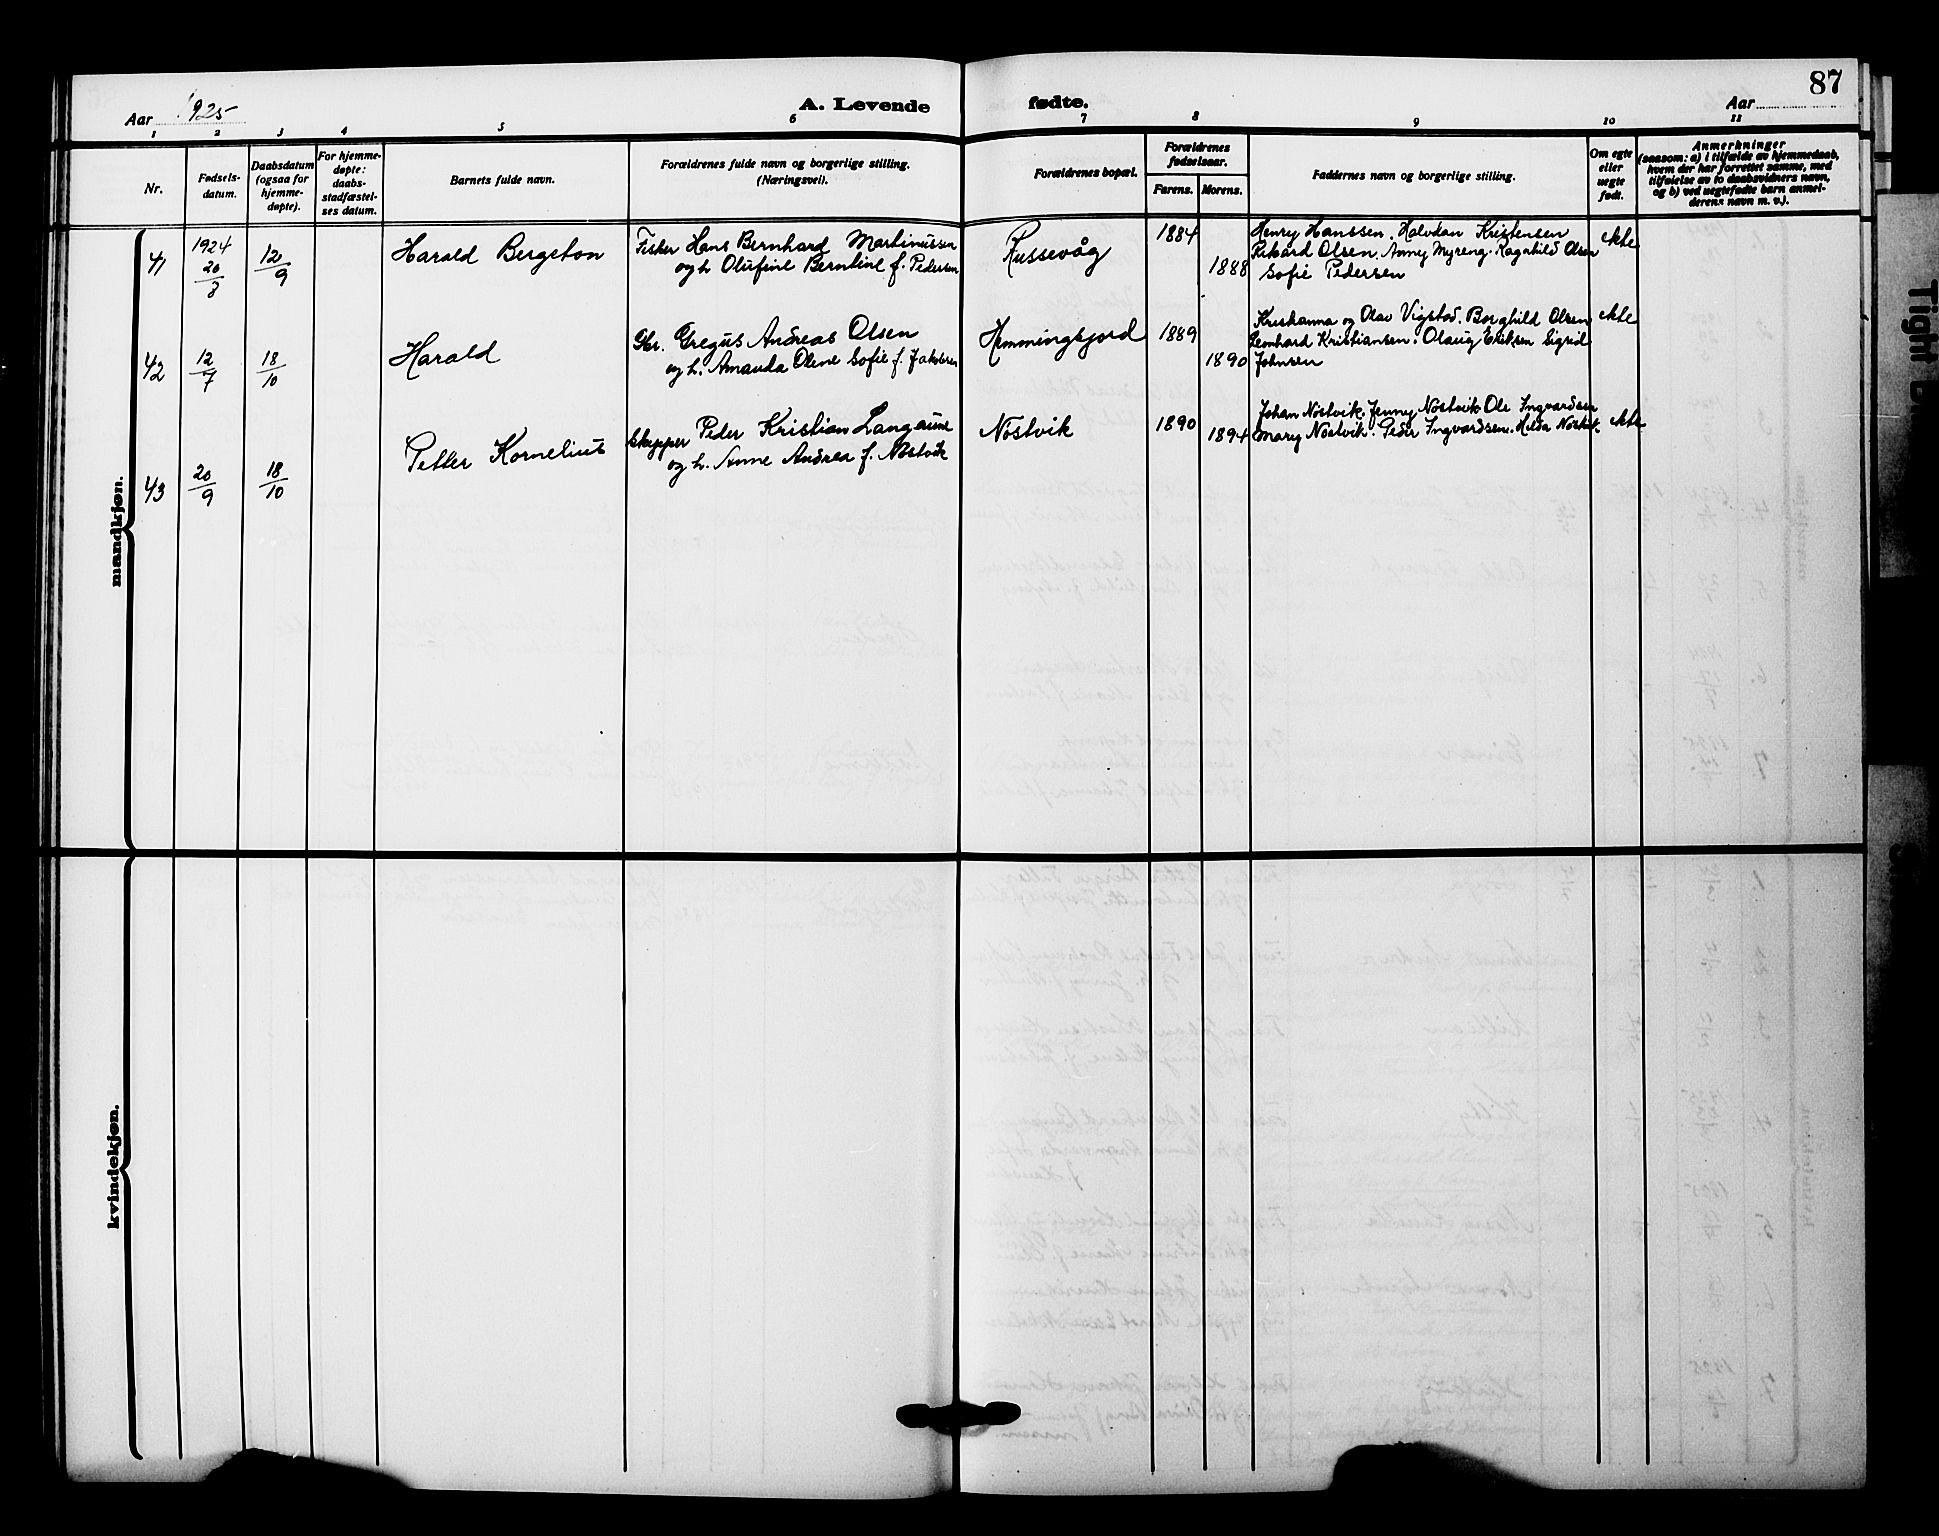 87
Aar 1925
A. Levende
fødte.
Aar
1 2 3 4 5 6 7 8 9 10 11
Nr.
Fødsels-
datum.
Daabsdatum
(ogsaa for
hjemme-
døpte).
For hjemme-
døpte:
daabs-
stadfæstel-
ses datum.
Barnets fulde navn.
Forældrenes fulde navn og borgerlige stilling.
(Næringsvei).
Forældrenes bopæl.
Forældrenes
fødselsaar.
Farens. Morens.
Faddernes navn og borgerlige stilling.
Om egte
eller
uegte
født.
Anmerkninger
(saasom: a) i tilfælde av hjemmedaab,
hvem der har forrettet samme, med
tilføielse av to daabsvidners navn,
og b) ved uegtefødte barn anmel-
derens navn m. v.).
mandkjøn.
41
1924
20/8
12/9
Harald Bergeton
Fisker Hans Bernhard Martinussen
og h. Olufine Berntine f. Pedersen
Russevåg
1884
1888
Henry Hanssen. Halvdan Kristensen
Rikard Olsen. Anny Myreng. Ragnhild Olsen
Sofie Pedersen
ekte
42
12/7
18/10
Harald
Gbr. Gregus Andreas Olsen
og h. Amanda Oline Sofie f. Jakobsen
Hemmingsfjord
1889
1890
Kristianna og Olav Vigstad. Borghild Olsen
Leonhard Kristiansen. Olaug Eriksen Sigrid
Johnsen
ekte
43
20/9
18/10
Petter Kornelius
Skipper Peder Kristian Langaune
og h. Anne Andrea f. Nøstvik
Nøstvik
1890
1894
Johan Nøstvik. Jenny Nøstvik Ole Ingvardsen
Mary Nøstvik. Peder Ingvardsen. Hilda Nøstvik
ekte
kvindekjøn.
Tight